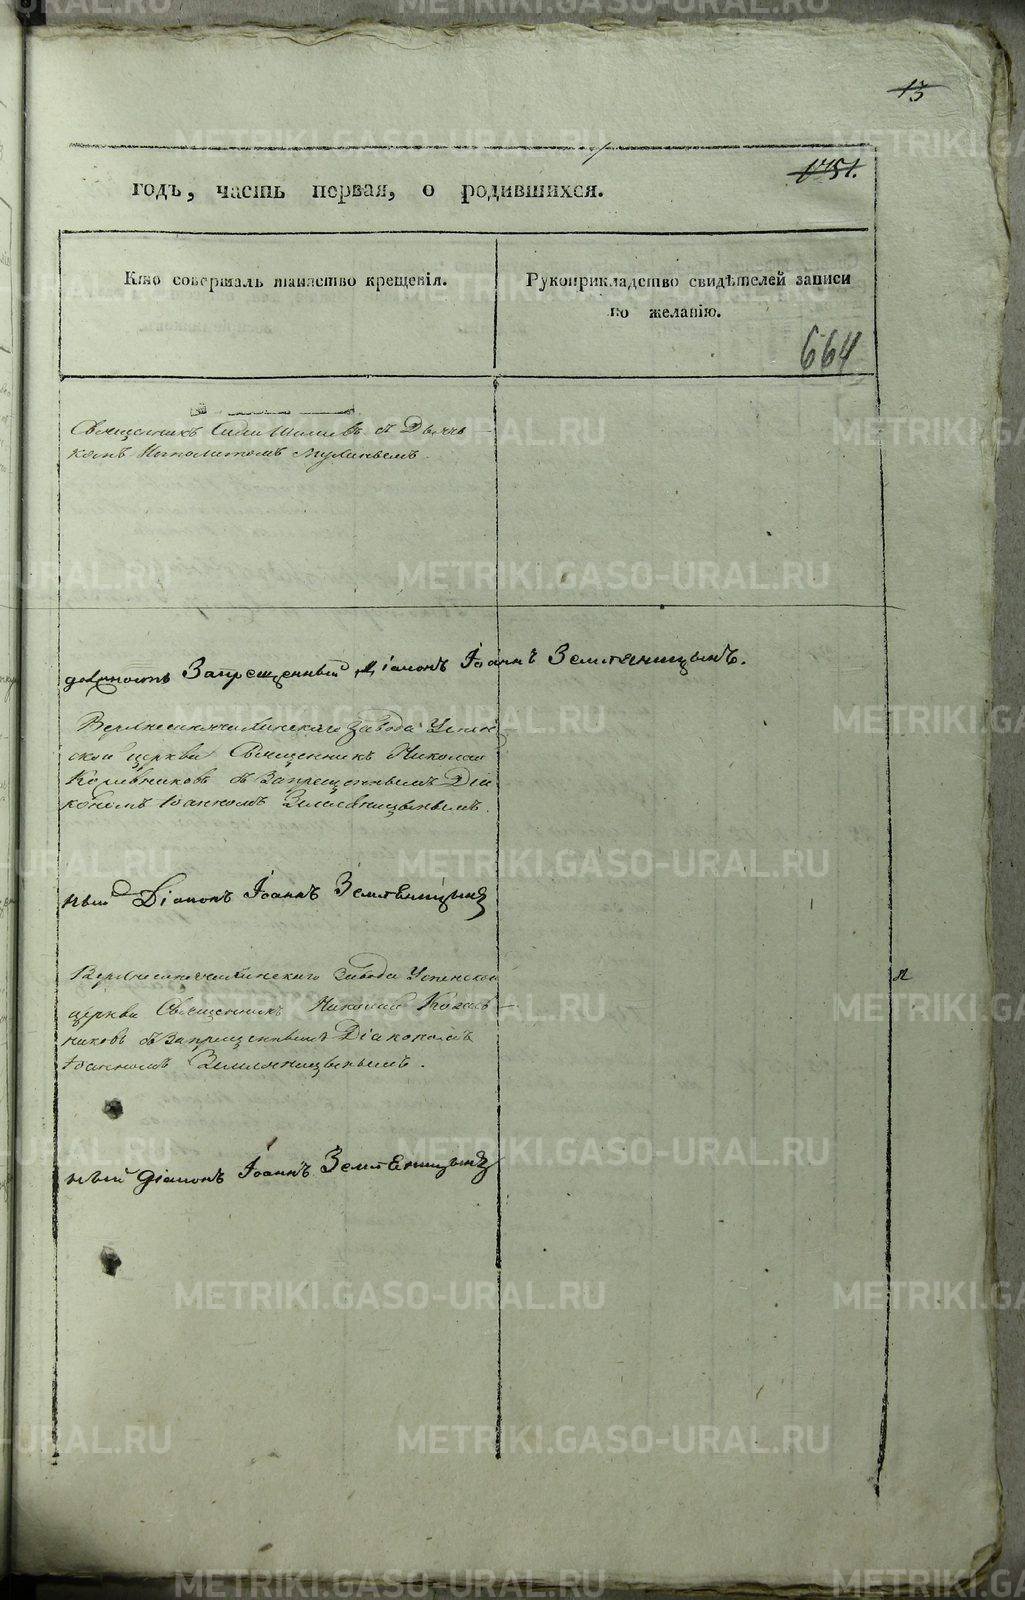 13
1751.
годъ, часть первая, о родившихся.
Кто совершалъ таинство крещенія.
Рукоприкладство свидѣтелей записи
по желанію.
664
Священникъ Симеонъ съ Дьяч-
комъ Ипполитомъ
должность Запрещенный Діаконъ Іоаннъ Земляницынъ.
завода Успен
ской церкви Священникъ Николай
Кожевниковъ съ Запрещеннымъ Діа
кономъ Іоанномъ Земляницынымъ.
ный Діаконъ Іоаннъ Земляницынъ
завода Успенской
церкви Священникъ Николай Кожев-
никовъ съ Запрещеннымъ Діакономъ
Іоанномъ Земляницынымъ.
ный діаконъ Іоаннъ Земляницынъ
METRIKI.GASO-URAL.RU